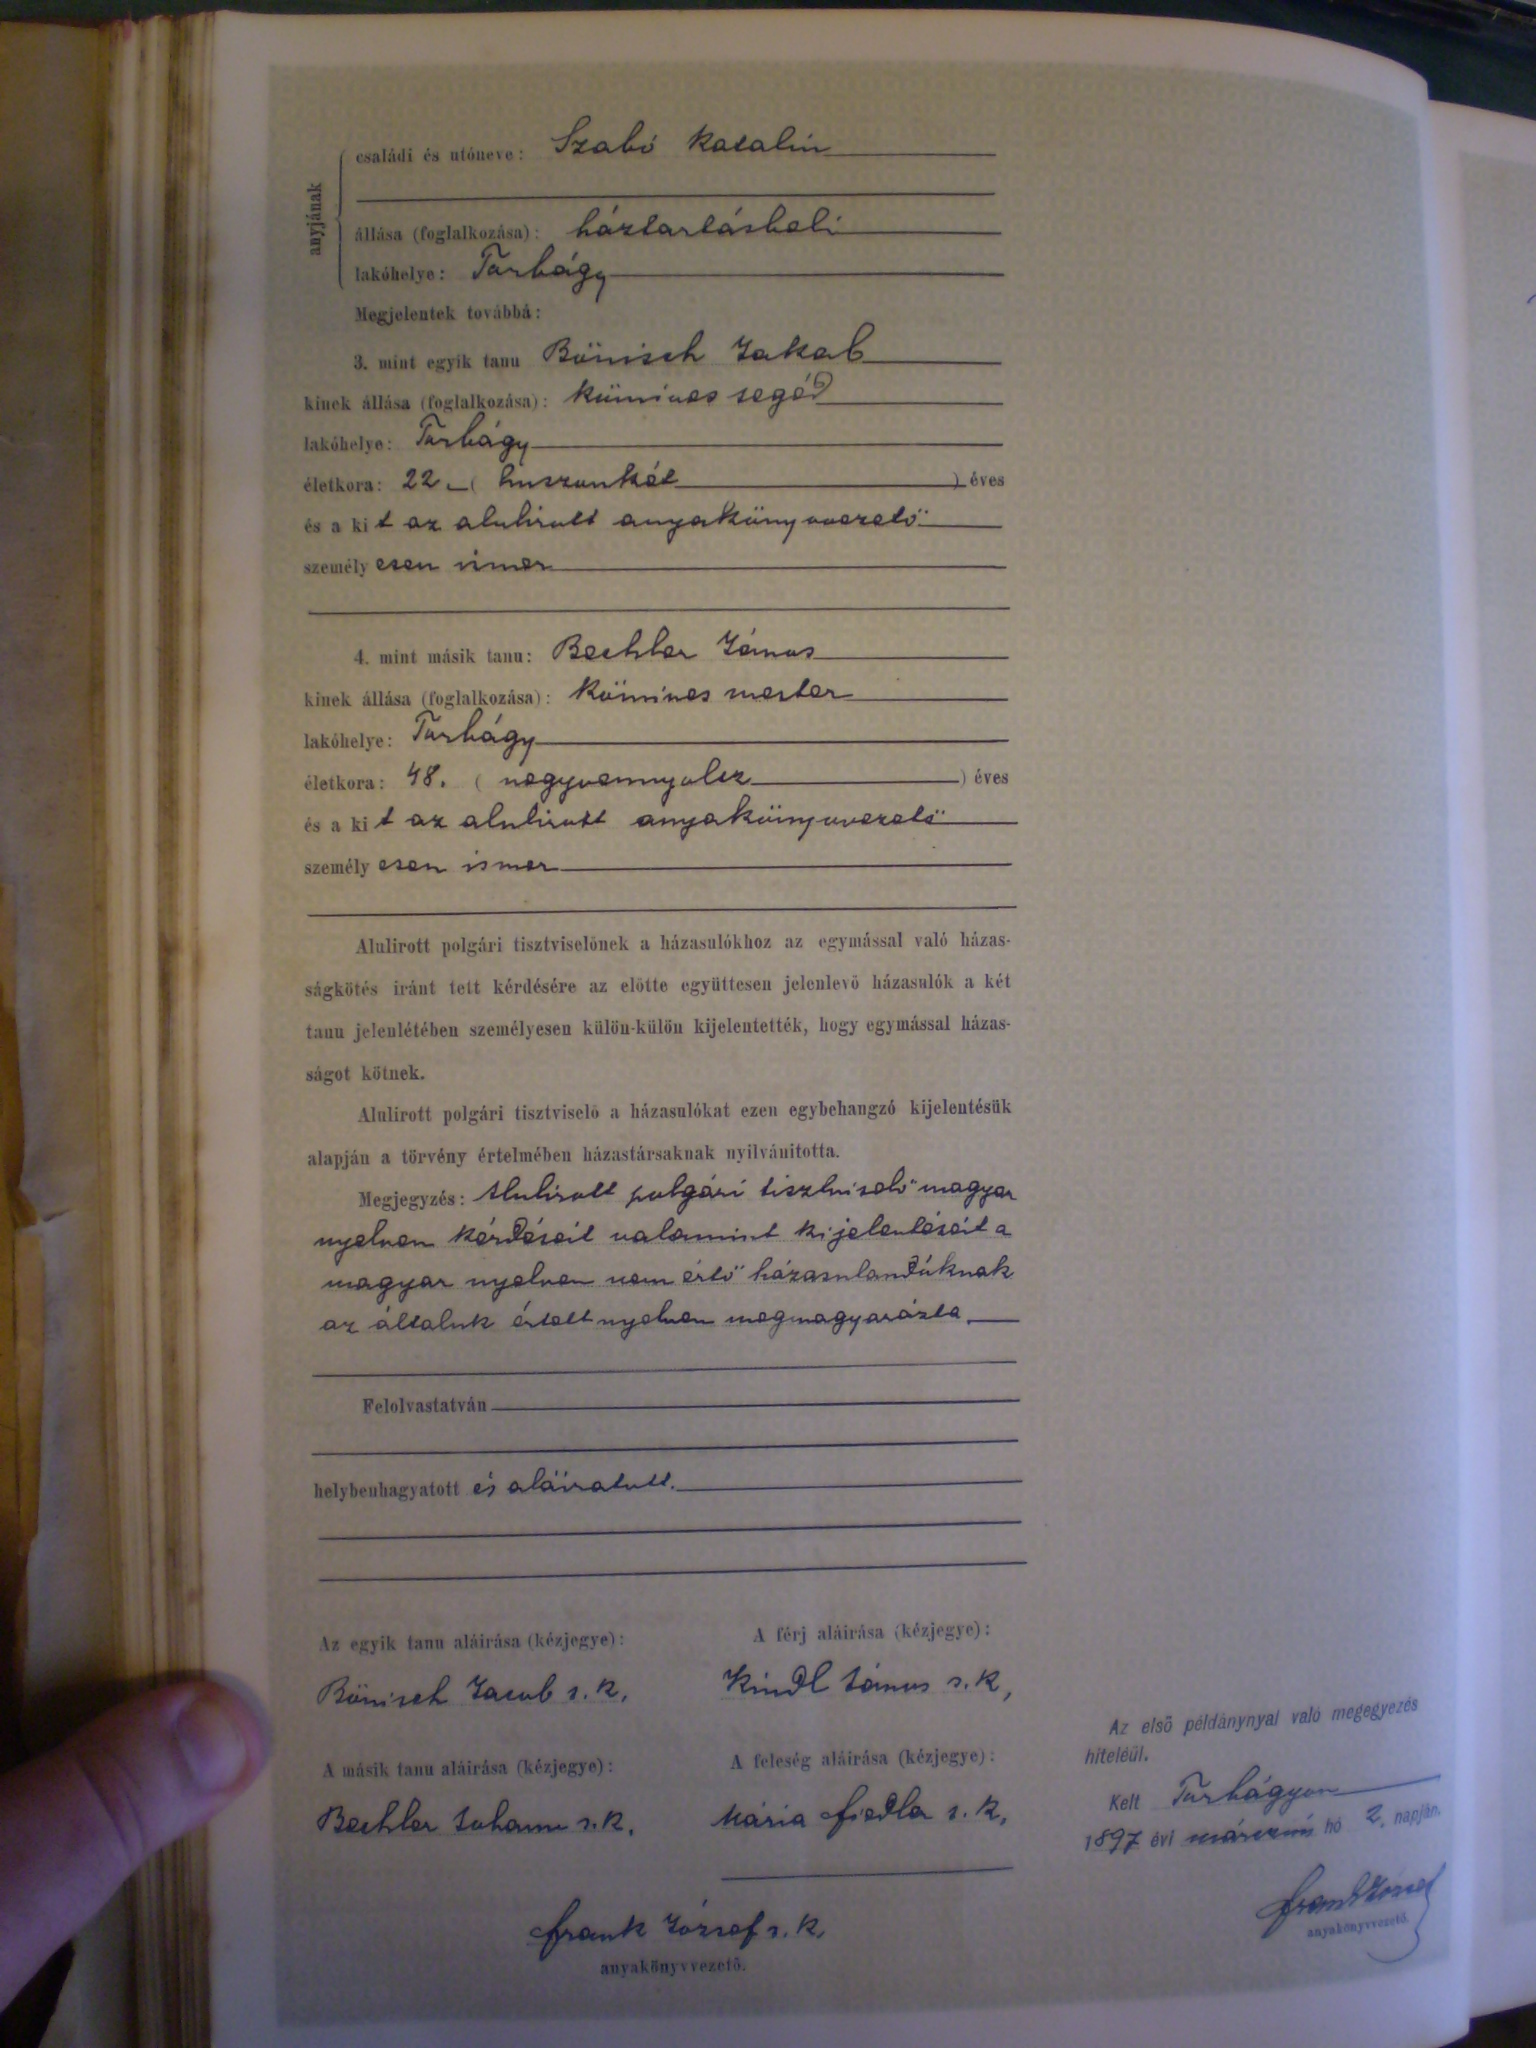 anyjának
családi és utóneve: Szabó Katalin
állása (foglalkozása): háztartásbeli
lakóhelye: Torbágy
Megjelentek továbbá:
3. mint egyik tanu Bönisch Jakab
kinek állása (foglalkozása): kömives segéd
lakóhelye: Torbágy
életkora: 22 – ( huszonkét ) éves
és a kit az alulirott anyakönyvvezető
személyesen ismer
4. mint másik tanu: Bechler János
kinek állása (foglalkozása): kömives mester
lakóhelye: Torbágy
életkora: 48. ( negyvennyolcz ) éves
és a kit az alulirott anyakönyvvezető
személyesen ismer
Alulirott polgári tisztviselőnek a házasulókhoz az egymással való házas-
ságkötés iránt tett kérdésére az előtte együttesen jelenlevő házasulók a két
tanu jelenlétében személyesen külön-külön kijelentették, hogy egymással házas-
ságot kötnek.
Alulirott polgári tisztviselő a házasulókat ezen egybehangzó kijelentésük
alapján a törvény értelmében házastársaknak nyilvánitotta.
Megjegyzés: Alulirott polgári tisztviselő magyar
nyelven kérdéseit valamint kijelentéseit a
magyar nyelven nem értő házasulandóknak
az általuk értett nyelven megmagyarázta.
Felolvastatván
helybenhagyatott és aláiratott.
Az egyik tanu aláirása (kézjegye):
A férj aláirása (kézjegye):
Bönisch Jacob s. k.
Kindl János s. k,
A másik tanu aláirása (kézjegye):
A feleség aláirása (kézjegye):
Bechler Johann s. k.
Mária Fiedler s. k,
Frank József s. k.
anyakönyvvezető.
Az első példánynyal való megegyezés
hiteléül.
Kelt Torbágyon
1897 évi márczius hó 2. napján.
Frank József
anyakönyvvezető.